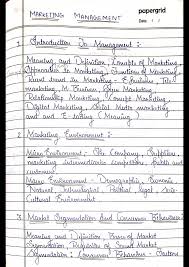 papergrid
Date: / /
MARKETING MANAGEMENT
1. Introduction To Management:
Meaning and Definition, Concepts of Marketing,
Approaches to Marketing, Functions of Marketing
Recent trend in Marketing - E-business, Tele
marketing, M-Business, Green Marketing
Relationship Marketing, Concept Marketing
Digital Marketing, Social Media Marketing
and E-tailing (Meaning)
2. Marketing Environment:
Micro Environment - The Company, Suppliers,
Marketing Intermediaries, Competitors, Public and
Customers
Macro Environment - Demographic, Economic
Natural, Technological, Political, Legal, Socio
Cultural Environment
3. Market Segmentation and Consumer Behaviour:
Meaning and Definition, Bases of Market
Segmentation, Requisites of Sound Market
Segmentation, Consumer Behaviour -